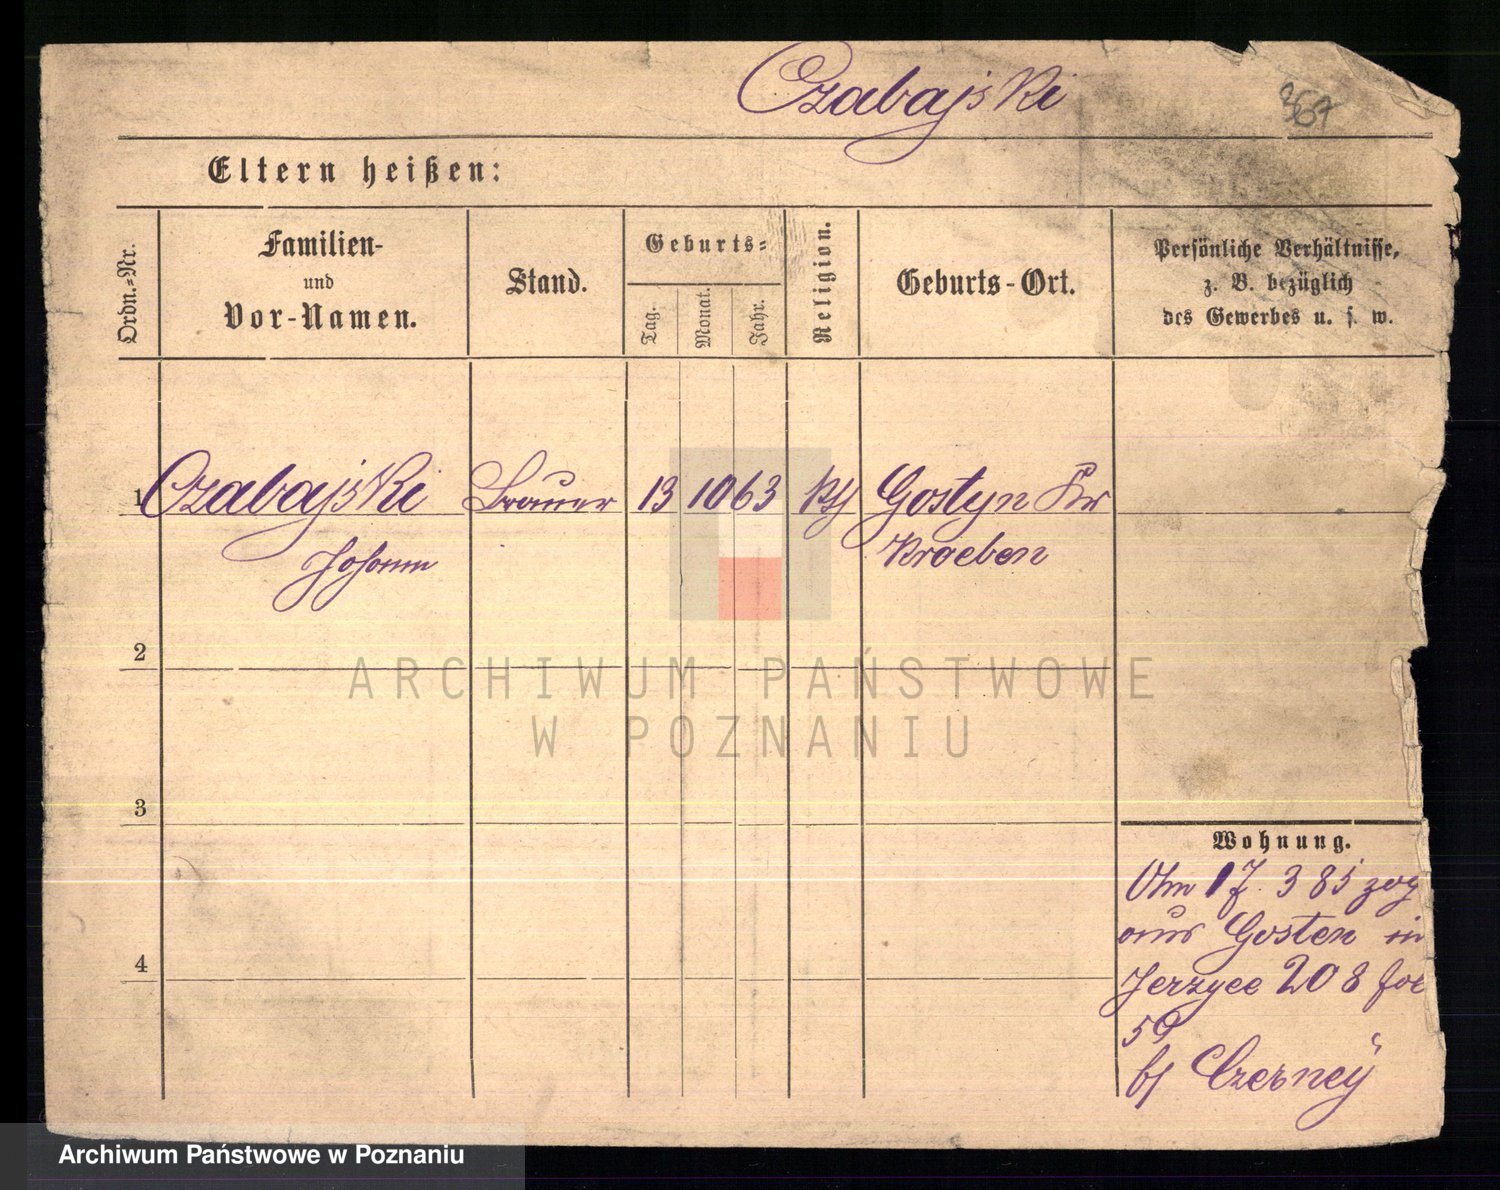 Czabajski
367
Eltern heißen:
Ordn.-Nr.
Familien-
und
Vor-Namen.
Stand.
Geburts-
Tag.
Monat.
Jahr.
Religion.
Geburts-Ort.
Persönliche Verhältnisse,
z. B. bezüglich
des Gewerbes u. s. w.
1 Czabajski Brauer 13 10 63 Gostyn Kr
Johann Kroeben
2
3
4
Wohnung.
17. 3 85 zog
aus Gosten in
Jerzyce 208 fol
59
bj Czerney
ARCHIWUM PAŃSTWOWE
W POZNANIU
Archiwum Państwowe w Poznaniu